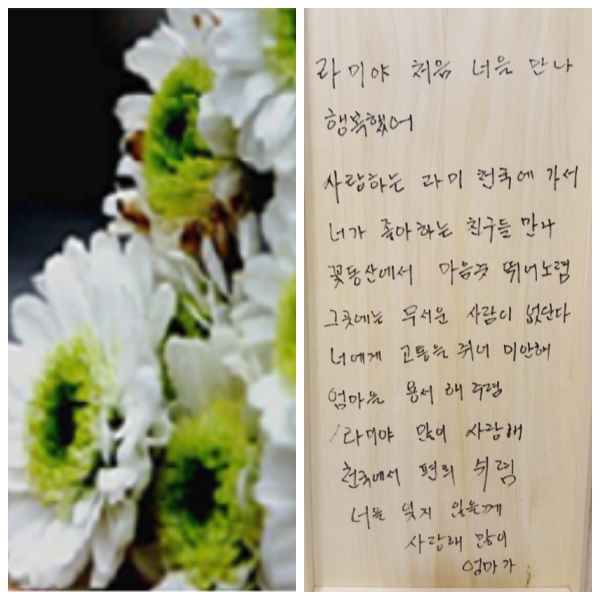 라미야 처음 너을 만나
행복했어
사랑하는 라미 천국에 가서
너가 좋아하는 친구들 만나
꽃동산에서 마음껏 뛰어노렴
그곳에는 무서운 사람이 없단다
너에게 고통을 줘서 미안해
엄마을 용서 해 주렴
라미야 많이 사랑해
천국에서 편희 쉬렴
너를 잊지 않을께
사랑해 많이
엄마가